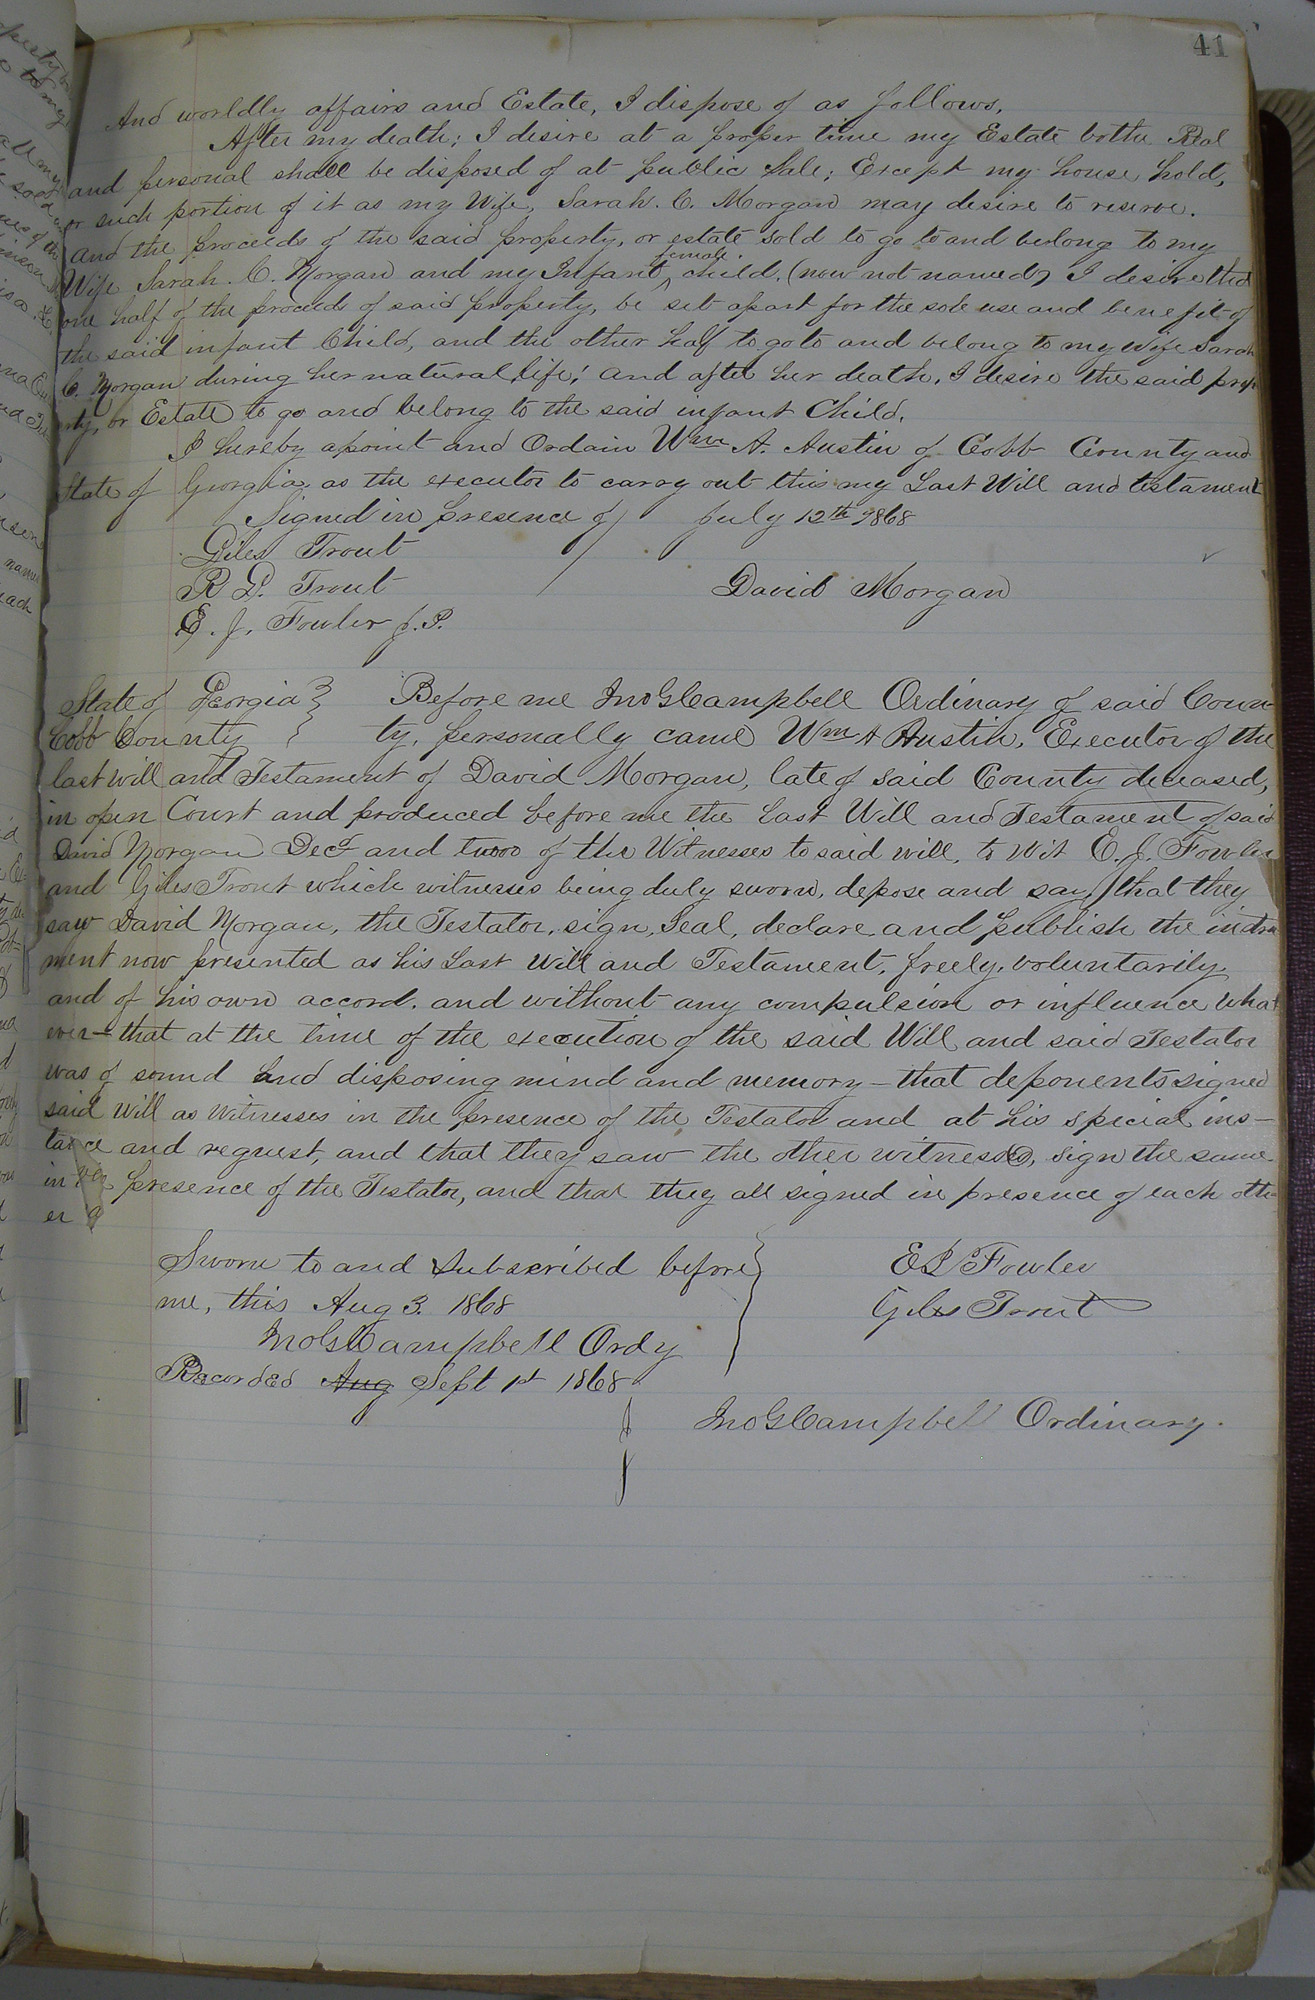 41
And worldly affairs and Estate, I dispose of as follows.
After my death; I desire at a proper time my Estate bothe Real
and personal shall be disposed of at public Sale; Except my house hold,
or such portion of it as my Wife, Sarah. C. Morgan may desire to reserve.
And the proceeds of the said property, or estate sold to go to and belong to my
Wife Sarah. C. Morgan and my Infant female child. (now not named) I desire that
one half of the proceeds of said property, be set apart for the sole use and benefit of
the said infant Child, and the other half to go to and belong to my wife Sarah
C. Morgan during her natural life; and after her death, I desire the said prop
erty, or Estate to go and belong to the said infant Child.
I hereby apoint and Ordain Wm A. Austin of Cobb County and
State of Georgia, as the executor to carry out this my Last Will and testament
Signed in presence of July 12th 1868
Giles Trout
R. P. Trout David Morgan
E. J. Fowler J. P.
State of Georgia } Before me Jno G Campbell Ordinary of said Coun
Cobb County } ty, personally came Wm A Austin, Executor of the
last will and Testament of David Morgan, late of said County deceased,
in open Court and produced before me the Last Will and Testament of said
David Morgan Decd and two of the Witnesses to said will, to wit E. J. Fowler
and Giles Trout which witnesses being duly sworn, depose and say, that they
saw David Morgan, the Testator, sign, Seal, declare and publish the instru
ment now presented as his Last Will and Testament, freely, voluntarily,
and of his own accord. and without any compulsion or influence what
ever - that at the time of the execution of the said Will and said Testator
was of sound and disposing mind and memory - that deponents signed
said Will as Witnesses in the presence of the Testator and at his special ins-
tance and request, and that they saw the other witness sign the same
in the presence of the Testator, and that they all signed in presence of each oth-
er
Sworn to and Subscribed before } E J Fowler
me, this Aug 3. 1868 Giles Trout
Jno G Campbell Ordy
Recorded Aug Sept 1st 1868
Jno G Campbell Ordinary.